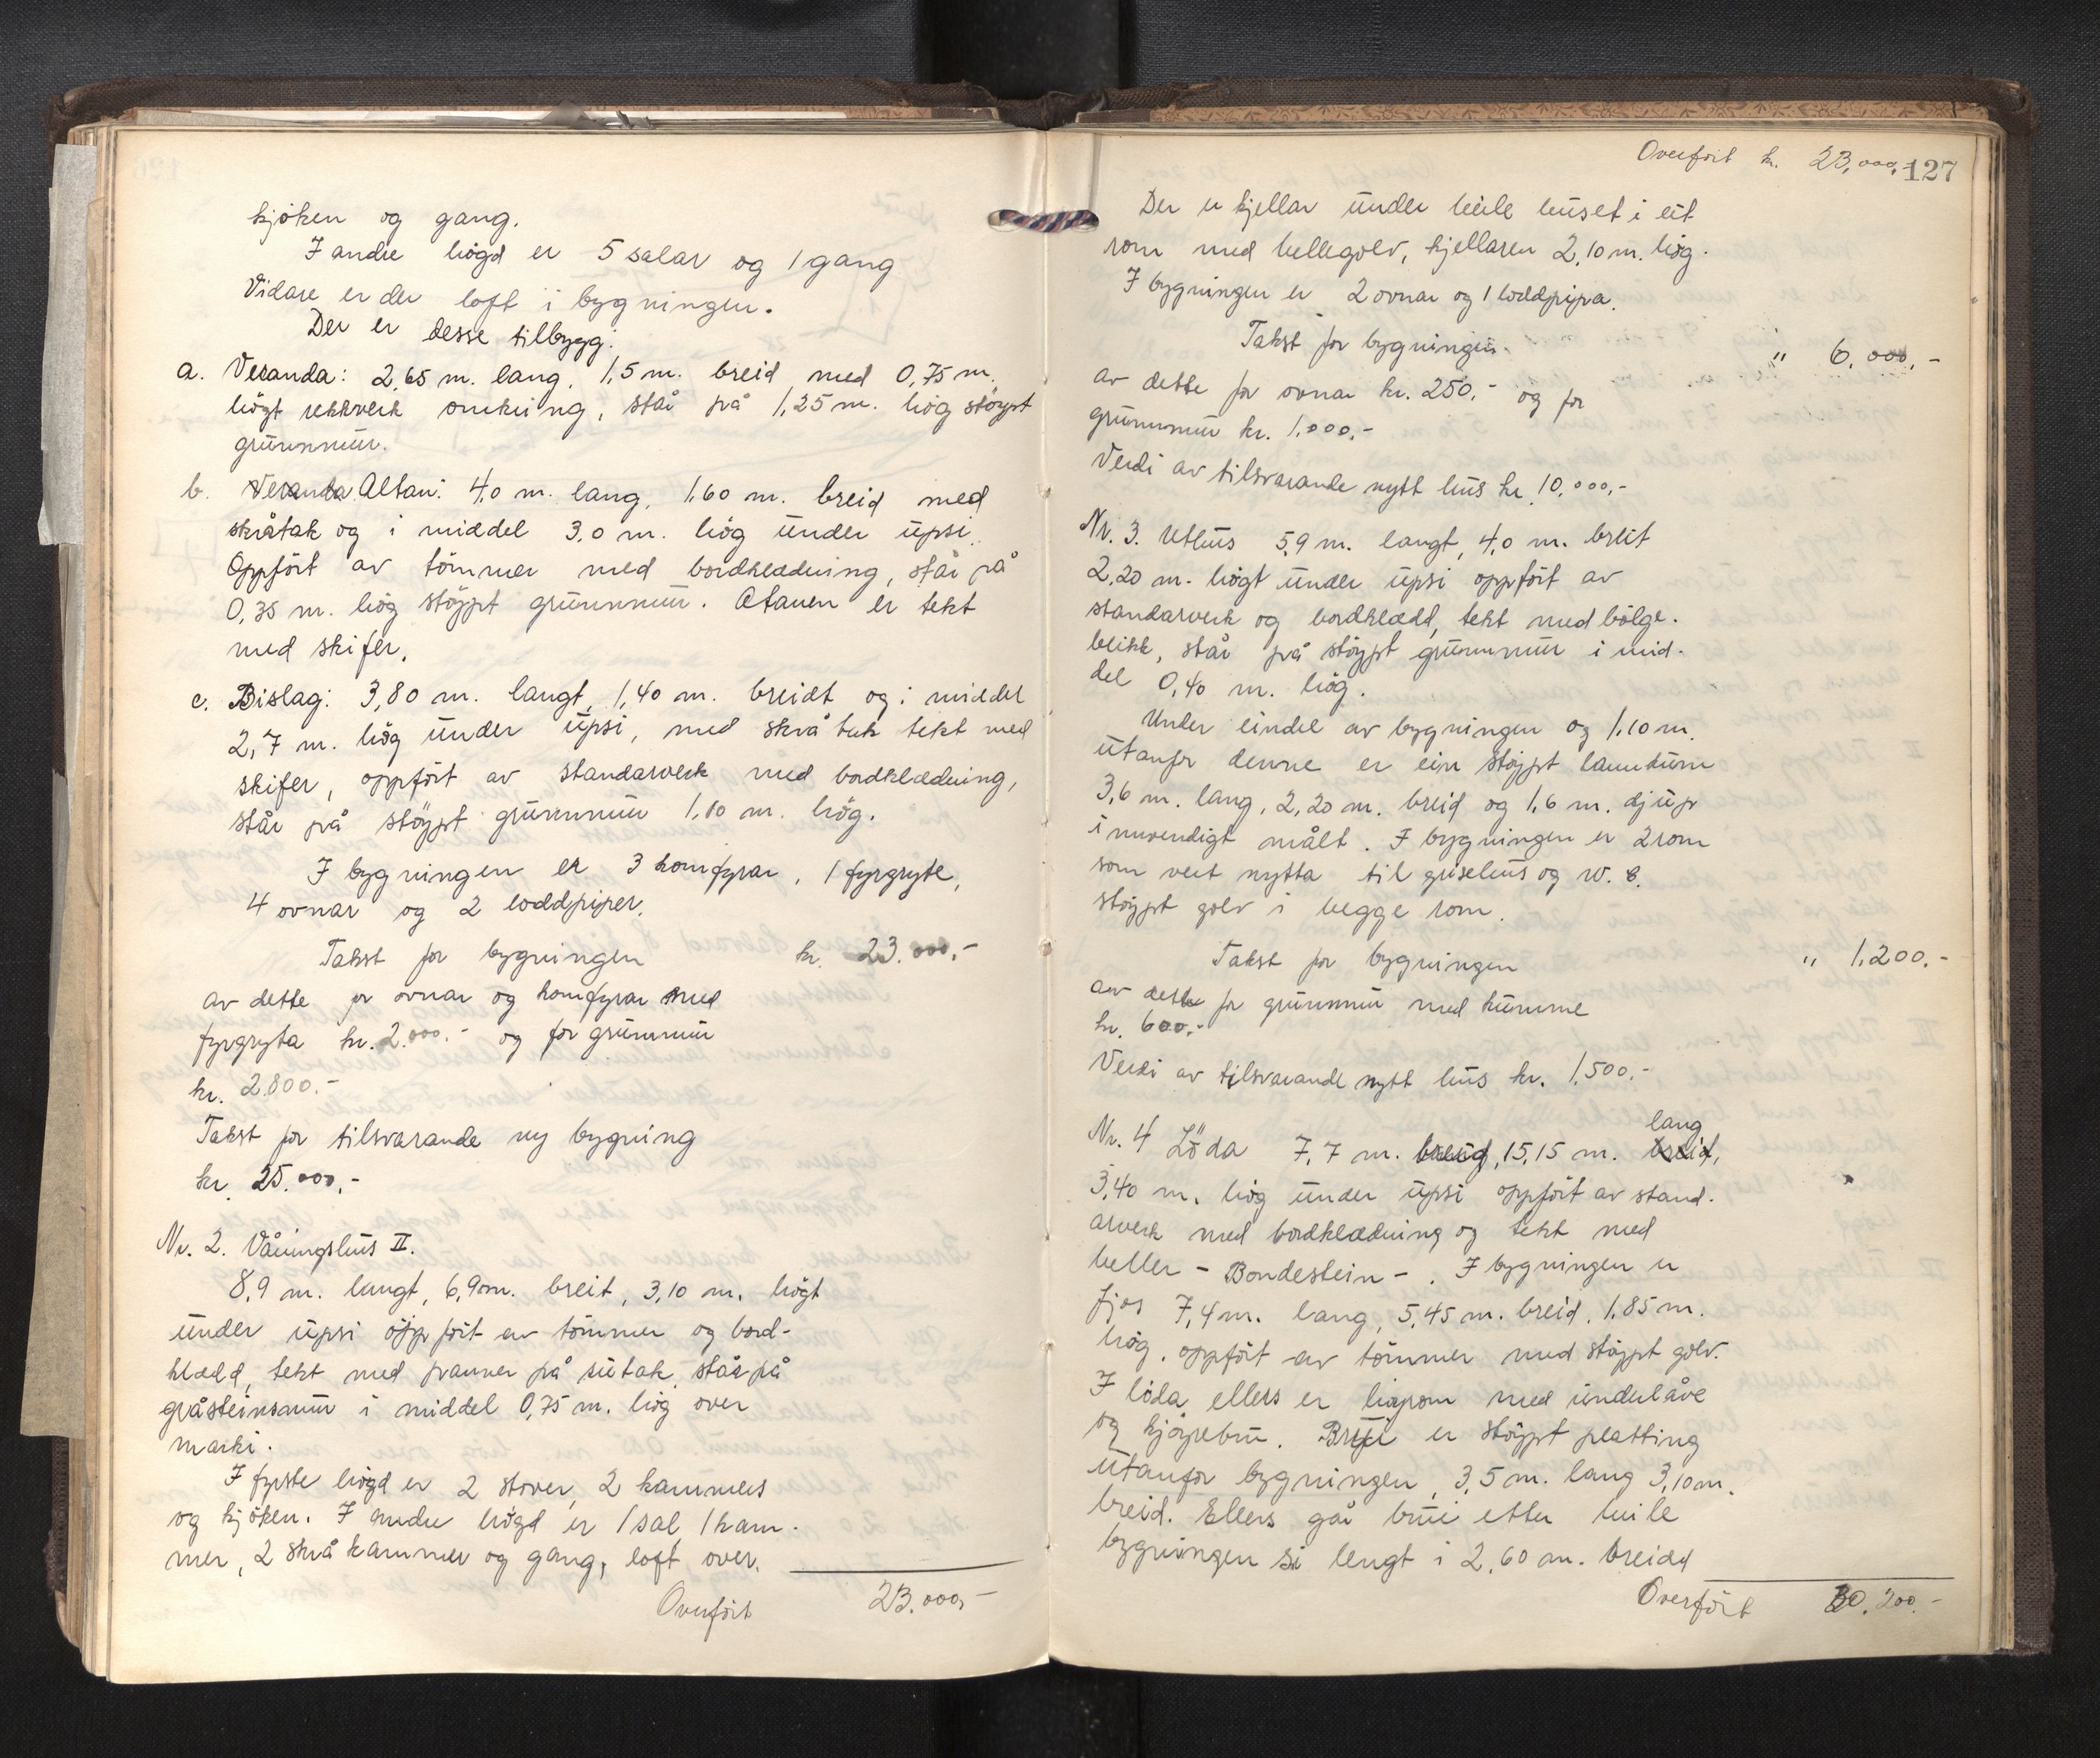 kjöken og gang.
I andre högd er 5 salar og 1 gang
Vidare er der loft i bygningen.
Der er desse tilbygg:
a. Veranda: 2,65 m. lang, 1,5 m. breid med 0,75 m.
högt rekkverk omkring, står på 1,25 m. hög stöypt
grunnmur.
b. Veranda Altan: 4,0 m. lang, 1,60 m. breid med
skråtak og i middel 3,0 m. hög under upsi.
Oppfört av tömmer med bordklædning, står på
0,35 m. hög stöypt grunnmur. Atanen er tekt
med skifer.
c. Bislag: 3,80 m. langt, 1,40 m. breidt og i middel
2,7 m. hög under upsi, med skråtak tekt med
skifer, oppfört av standarverk med bordklædning,
står på stöypt grunnmur 1,10 m. hög.
I bygningen er 3 komfyrar, 1 fyrgryte,
4 ovnar og 2 loddpiper.
Takst for bygningen kr. 23.000,-
av dette for ovnar og komfyrar med
fyrgryta kr. 2.000.- og for grunnmur
kr. 2.800.-
Takst for tilsvarande ny bygning
kr. 25.000,-
Nr. 2. Våningshus II.
8,9 m. langt, 6,9 m. breit, 3,10 m. högt
under upsi oppfört av tömmer og bord-
klædd, tekt med panner på sutak, står på
gråsteinsmur i middel 0,75 m. hög over
marki.
I fyrste högd er 2 stover, 2 kammers
og kjöken. I andre högd er 1 sal 1 kam-
mer, 2 skråkammer og gang, loft over.
Overfört 23.000,-
Overfört kr. 23.000,- 127
Der er kjellar under heile huset i eit
rom med hellegolv, kjellaren 2,10 m. hög.
I bygningen er 2 ovnar og 1 loddpipa.
Takst for bygningen. " 6.000,-
av dette for ovnar kr. 250,- og for
grunnmur kr. 1.000,-
Verdi av tilsvarande nytt hus kr. 10.000,-
Nr. 3. Uthus 5,9 m. langt, 4,0 m. breit
2,20 m. högt under upsi oppfört av
standarverk og bordklædd, tekt med bölge-
blikk, står på stöypt grunnmur i mid-
del 0,40 m. hög.
Under eindel av bygningen og 1,10 m.
utanfor denne er ein stöypt landkum
3,6 m. lang, 2,20 m. breid og 1,6 m. djup
innvendigt målt. I bygningen er 2 rom
som vert nytta til grisehus og w.c.
stöypt golv i begge rom.
Takst for bygningen " 1.200.-
av dette for grunnmur med kumme
kr. 600.-
Verdi av tilsvarande nytt hus kr. 1.500.-
Nr. 4 Löda 7,7 m. breid, 15,15 m. breid, lang
3,40 m. hög under upsi oppfört av stand-
arverk med bordklædning og tekt med
heller - Bondestein - . I bygningen er
fjos 7,4 m. lang, 5,45 m. breid, 1,85 m.
hög, oppfört av tömmer med stöypt golv.
I löda ellers er höyrom med underlåve
og kjöyrebru. er stöypt platting
utanfor bygningen, 3,5 m. lang 3,10 m.
breid. Ellers går brui etter heile
bygningen si lengt i 2,60 m. breidd
Overfört 30.200.-